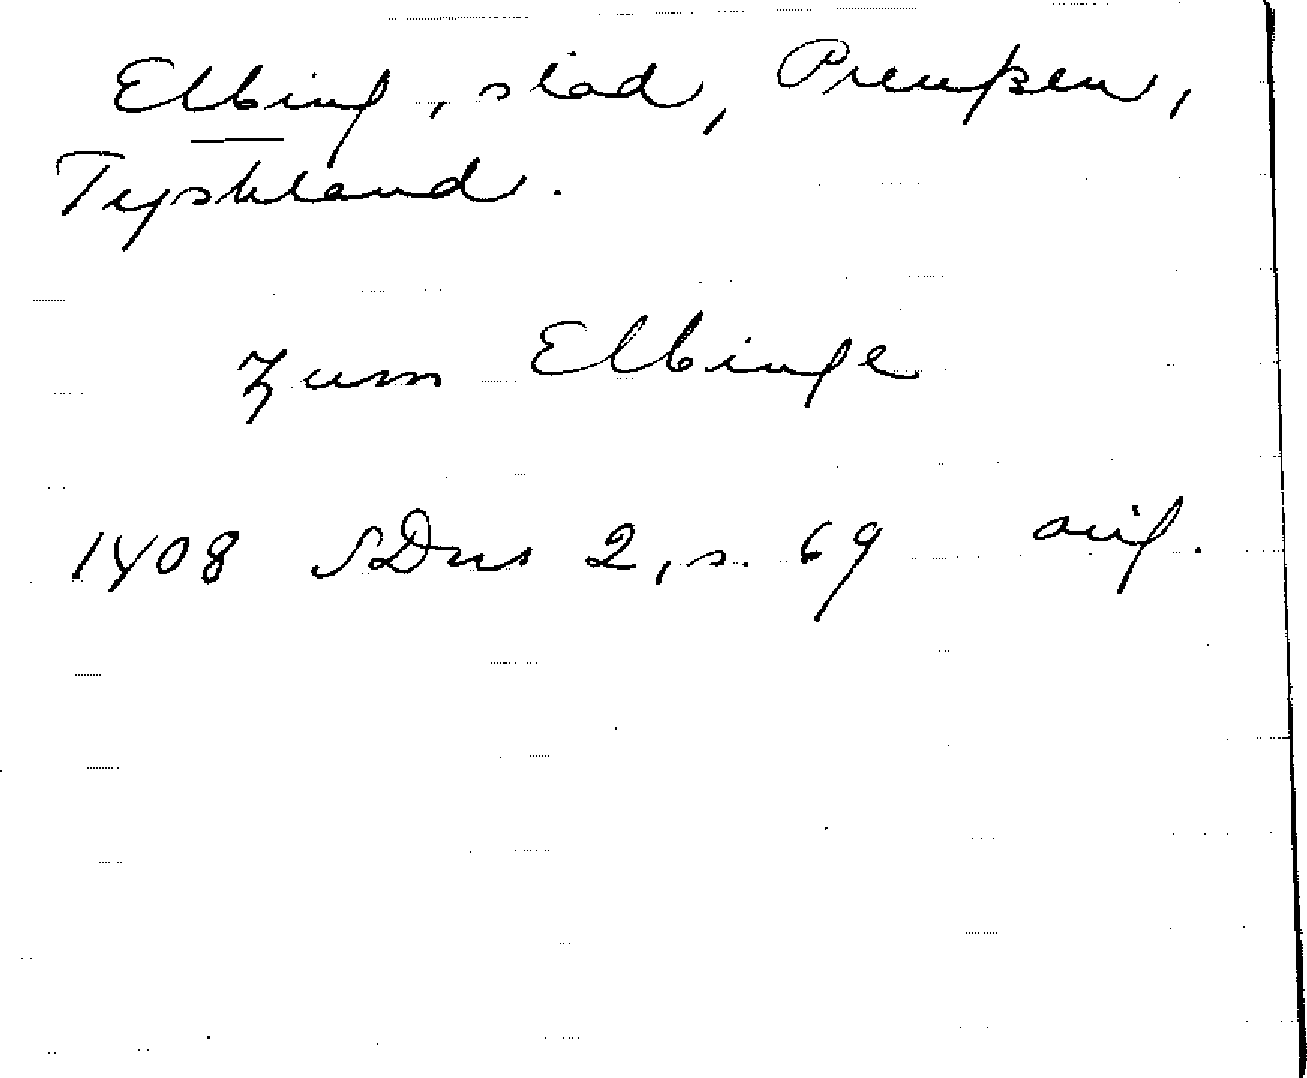 Elbing, stad, Preußen,
Tyskland.
zum Elbinge
1408 SDns 2, s. 69 orig.